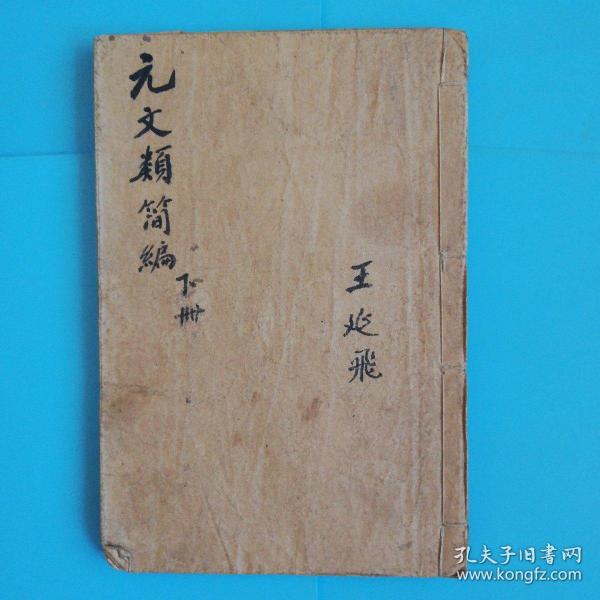 元文類简編
下册
王延飛
孔夫子旧書网
www.kongfz.com